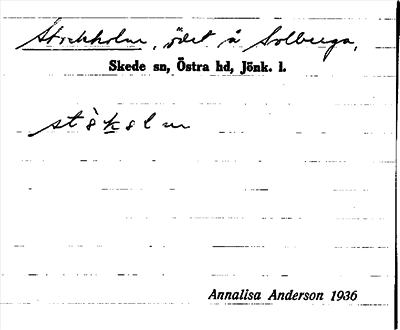 Stockholm, ödet å Solberga,
Skede sn, Östra hd, Jönk. l.
Annalisa Anderson 1936